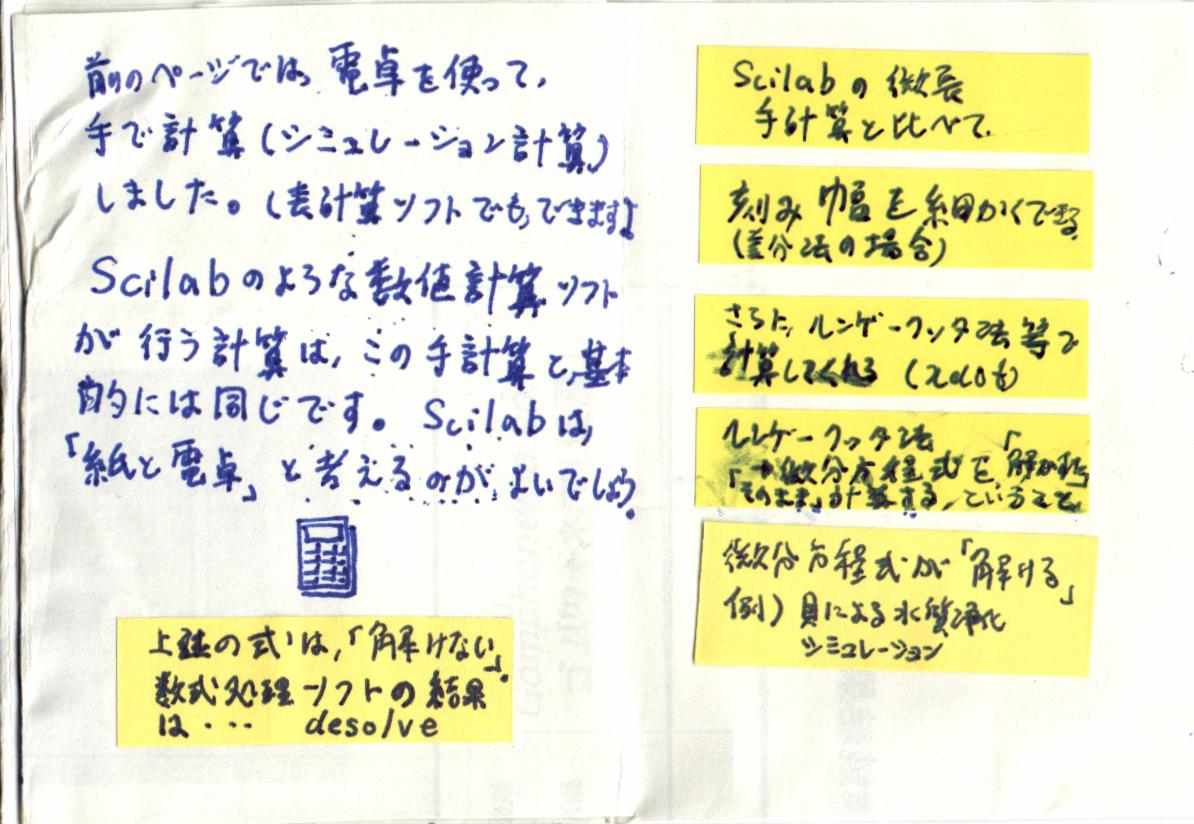 前のページでは、電卓を使って、
手で計算(シミュレーション計算)
しました。(表計算ソフトでも、できます)
Scilabのような数値計算ソフト
が行う計算は、この手計算と、基本
的には同じです。Scilabは、
「紙と電卓」と考えるのがよいでしょう。
上述の式は、「解けない」。
数式処理ソフトの結果
は・・・ desolve
Scilabの微長
手計算と比べて、
刻み幅を細かくできる
(差分法の場合)
さらに、ルンゲークッタ法等で
計算してくれる
ルンゲークッタ法
微分方程式を「解かずに
そのまま」計算する、ということ
微分方程式が「解ける」
例)貝による水質浄化
シミュレーション